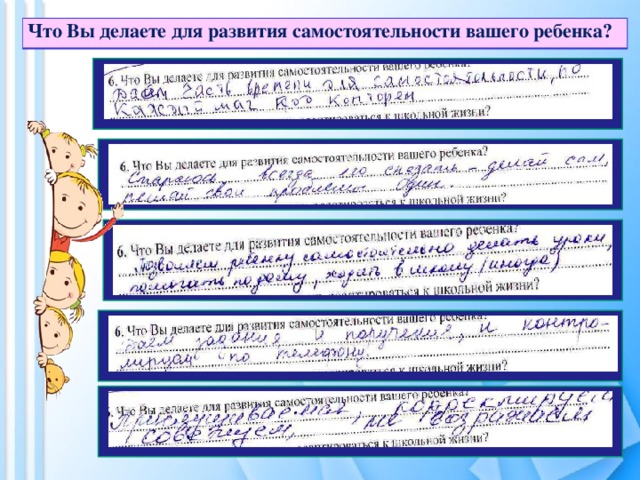 Что Вы делаете для развития самостоятельности вашего ребенка?
6. Что Вы делаете для развития самостоятельности вашего ребенка?
даем часть времени для самостоятельности, но
каждый шаг под контролем
к школьной жизни?
6. Что Вы делаете для развития самостоятельности вашего ребенка?
Стараюсь всегда его сделать - делай сам,
решай свои проблемы один.
6. Что Вы делаете для развития самостоятельности вашего ребенка?
Позволяем ребенку самостоятельно делать уроки,
помогать по дому, ходить в школу (иногда)
к школьной жизни?
6. Что Вы делаете для развития самостоятельности вашего ребенка?
даем задания и поручения, и контро-
по телефону.
к школьной жизни?
Что Вы делаете для развития самостоятельности вашего ребенка?
советуем, не
к школьной жизни?